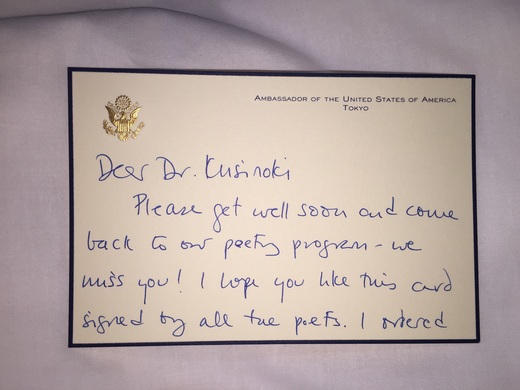 AMBASSADOR OF THE UNITED STATES OF AMERICA
TOKYO
Dear Dr. Kusinoki
Please get well soon and come
back to our poetry program - we
miss you! I hope you like this card
signed by all the poets. I ordered